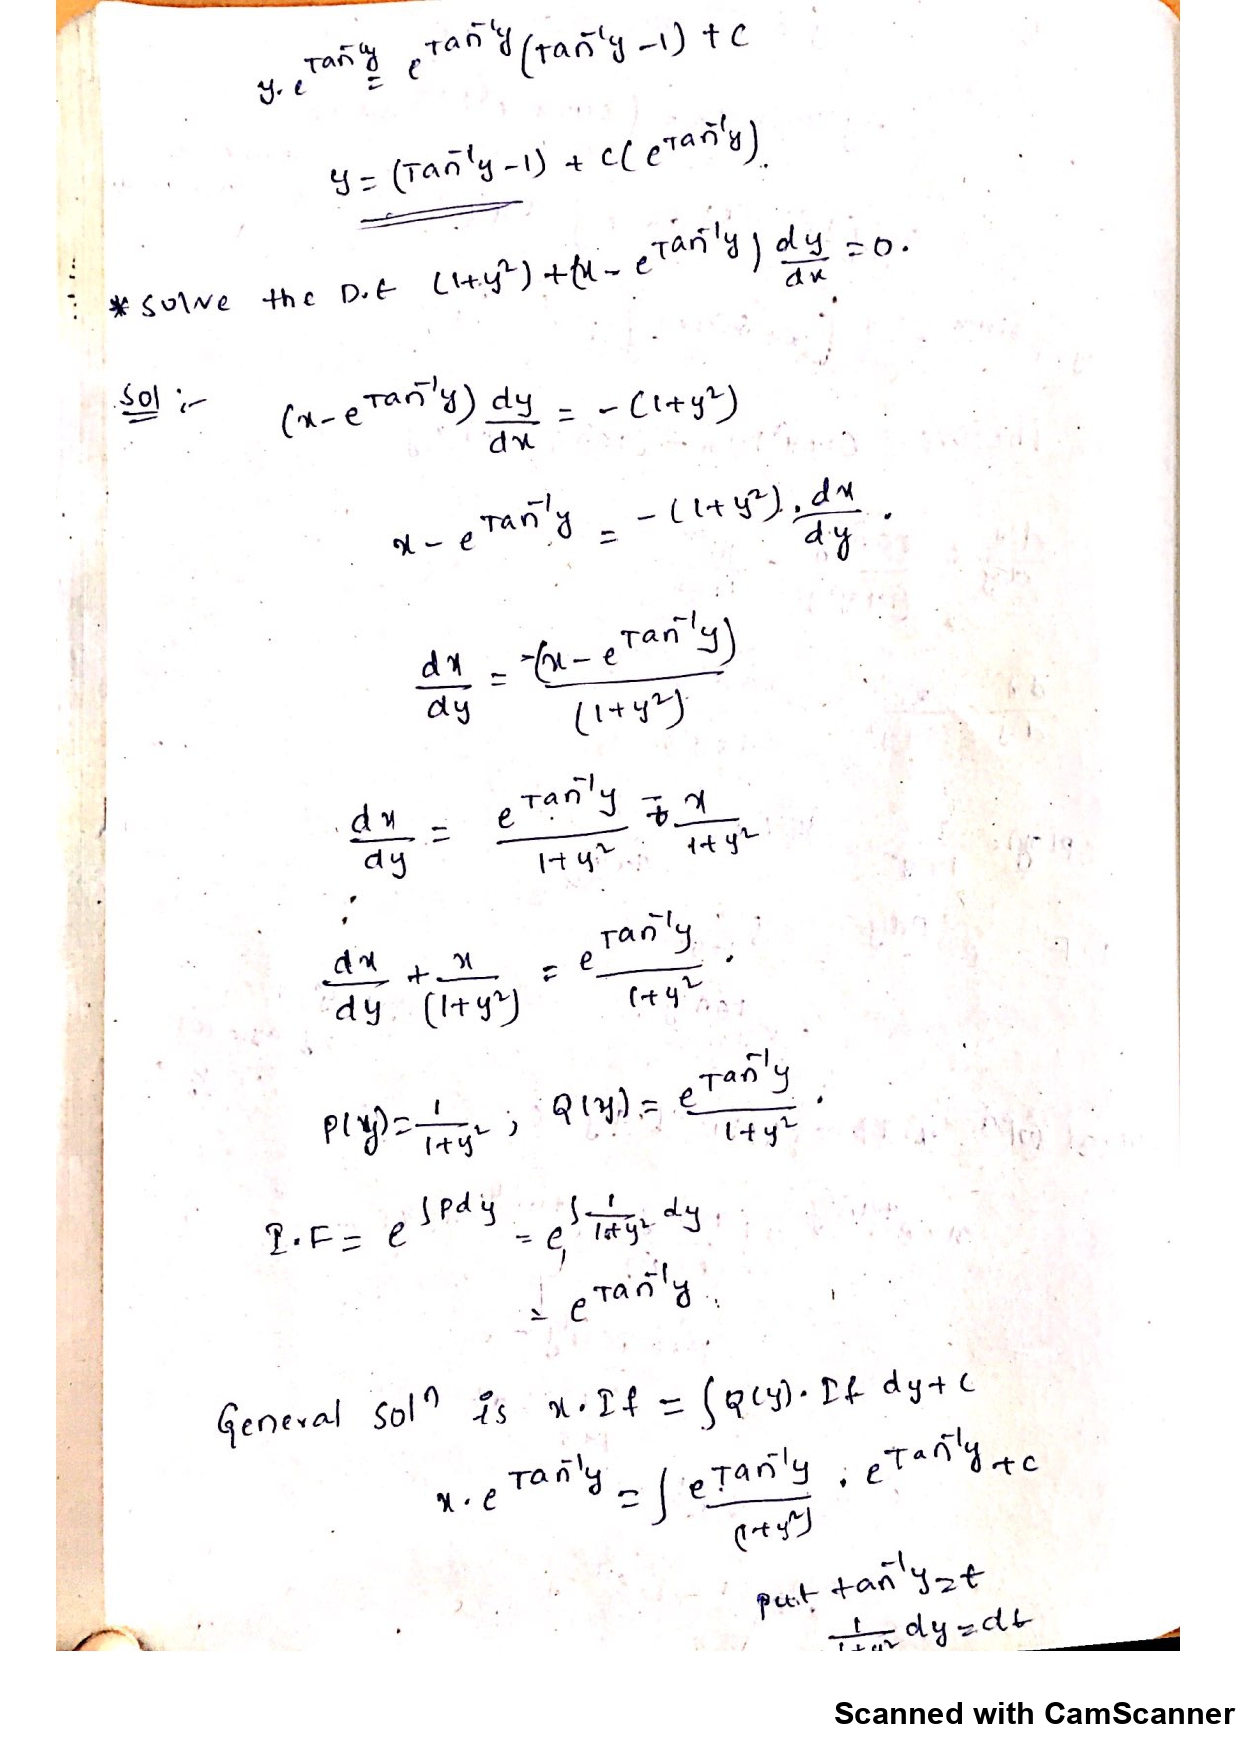 y. e^Tan⁻¹y = e^Tan⁻¹y (Tan⁻¹y -1) + C
y = (Tan⁻¹y -1) + C( e^Tan⁻¹y).
* Solve the D.E (1+y²) + (x - e^Tan⁻¹y) dy/dx = 0.
Sol :- (x - e^Tan⁻¹y) dy/dx = - (1+y²)
x - e^Tan⁻¹y = -(1+y²) . dx/dy .
dx/dy = -(x - e^Tan⁻¹y)/(1+y²)
dx/dy = e^Tan⁻¹y/1+y² - x/1+y²
dx/dy + x/(1+y²) = e^Tan⁻¹y/1+y² .
P(y) = 1/1+y² ; Q(y) = e^Tan⁻¹y/1+y² .
I.F = e^∫Pdy = e^∫1/1+y² dy
= e^Tan⁻¹y .
General solⁿ is x. If = ∫Q(y). If dy + c
x. e^Tan⁻¹y = ∫ e^Tan⁻¹y/(1+y²) . e^Tan⁻¹y + c
put tan⁻¹y = t
1/1+y² dy = dt
Scanned with CamScanner